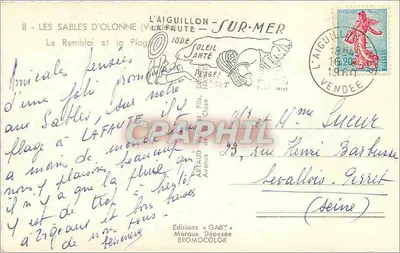 8 - LES SABLES D'OLONNE (V
Le Remblai et la Plag
L'AIGUILLON
LA FAUTE - SUR-MER
IODE
SOLEIL
SANTÉ
PLAGES
L'AIGUILLON
16.20
1960
VENDEE
Amicale pensées
d'une jolie promenade
aux Sables, sur notre
plage à LAFAUTE il y
a moins de monde
nous y plaisons beaucoup
il n'y a que la pluie qui
y est de trop à bientôt
à et bons baisers
de nous tous
Mr et Mme Sueur
23, rue Henri Barbusse
Levallois-Perret
(Seine)
ARTAUD
Editions "GABY"
Marque Déposée
BROMOCOLOR
PROKARTE